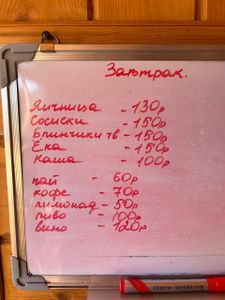 Завтрак.
Яичница - 130р
Сосиски - 150р
Блинчики тв - 150р
Ека - 150р
Каша - 100р
чай - 60р
кофе - 70р
лимонад - 50р
пиво - 100р
вино - 120р